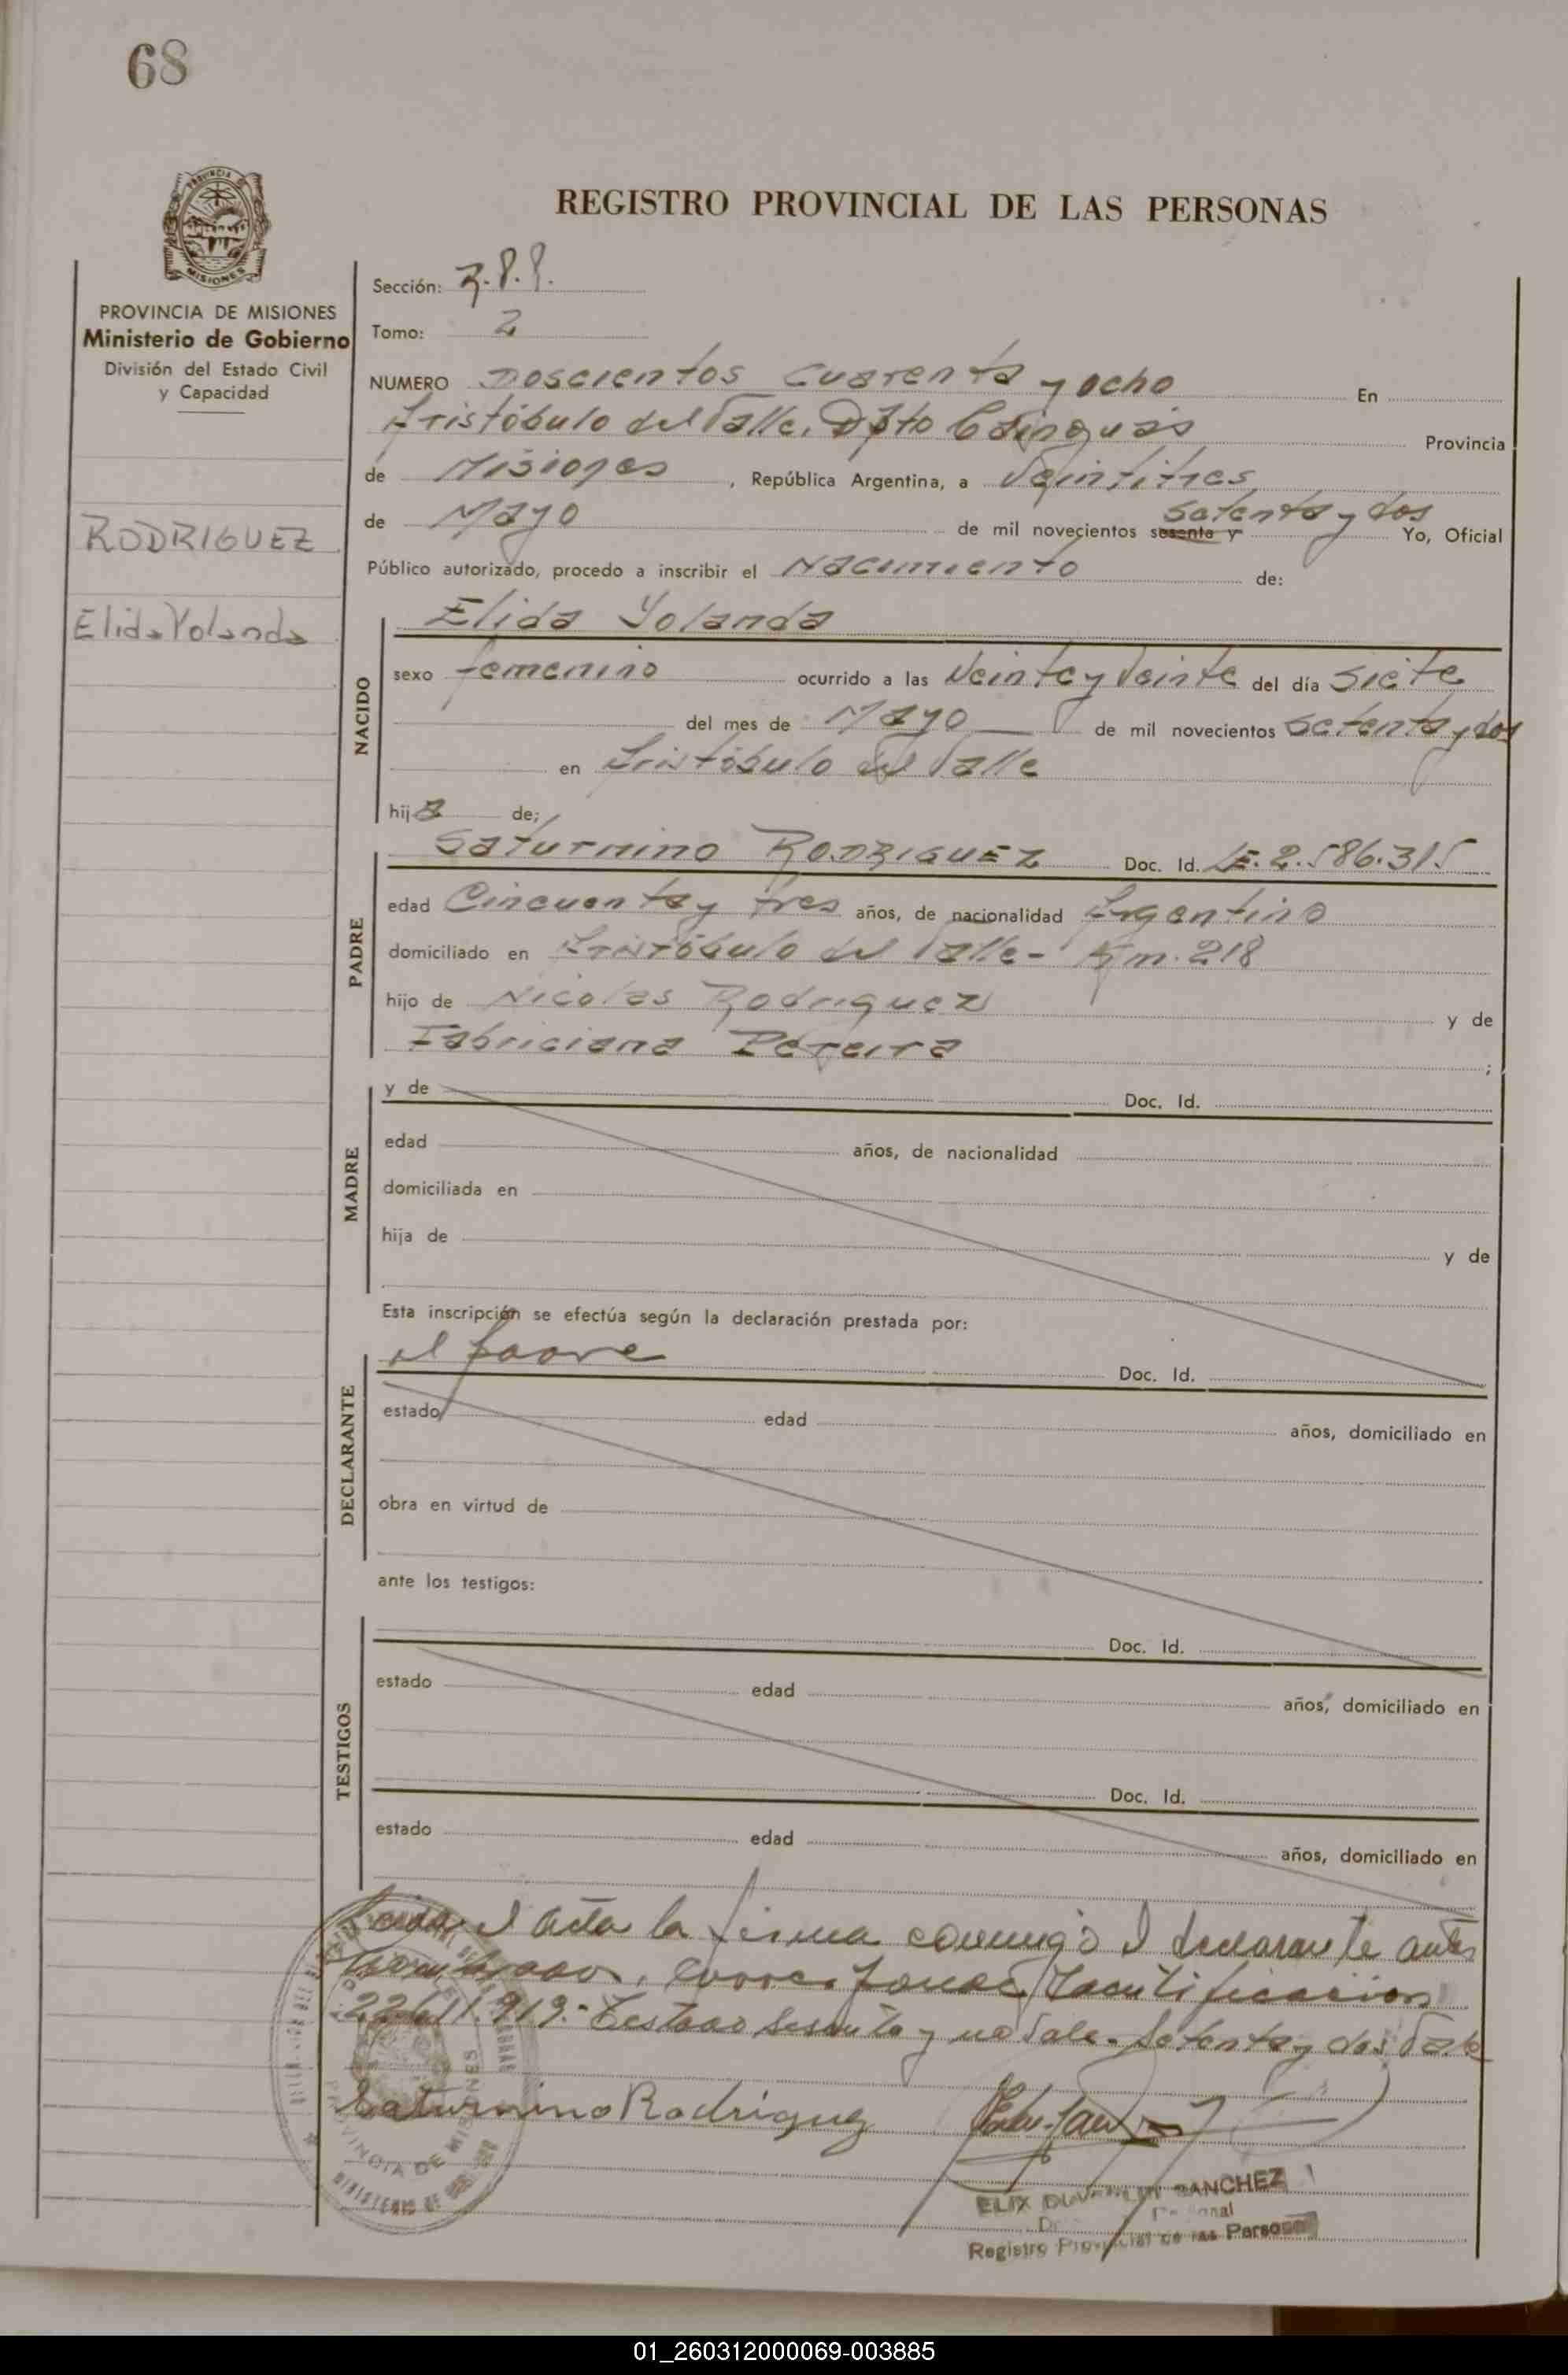 68
REGISTRO PROVINCIAL DE LAS PERSONAS
PROVINCIA DE MISIONES
Ministerio de Gobierno
División del Estado Civil
y Capacidad
RODRIGUEZ
Elida Yolanda
Sección:
Tomo: 2
NUMERO Doscientos cuarenta y ocho En
Aristóbulo del Valle, Dpto Cainguás Provincia
de Misiones, República Argentina, a Veintitres
de Mayo de mil novecientos sesenta y setenta y dos Yo, Oficial
Público autorizado, procedo a inscribir el Nacimiento de:
NACIDO
Elida Yolanda
sexo femenino ocurrido a las Veinte y Veinte del día Siete
del mes de Mayo de mil novecientos setenta y dos
en Aristóbulo del Valle
hija de;
PADRE
Saturnino RODRIGUEZ Doc. Id. LE. 2.586.315
edad Cincuenta y tres años, de nacionalidad Argentino
domiciliado en Aristóbulo del Valle - Km. 218
hijo de Nicolas Rodriguez y de
Fabriciana Pereira ;
MADRE
y de Doc. Id.
edad años, de nacionalidad
domiciliada en
hija de y de
Esta inscripción se efectúa según la declaración prestada por:
DECLARANTE
el padre Doc. Id.
estado edad años, domiciliado en
obra en virtud de
ante los testigos:
TESTIGOS
Doc. Id.
estado edad años, domiciliado en
Doc. Id.
estado edad años, domiciliado en
Leída el acta la firma conmigo el declarante antes
Testado sesenta y no vale. Setenta y dos Vale
Saturnino Rodriguez
SANCHEZ
Registro Provincial de las Personas
PROVINCIA DE MISIONES
01_260312000069-003885